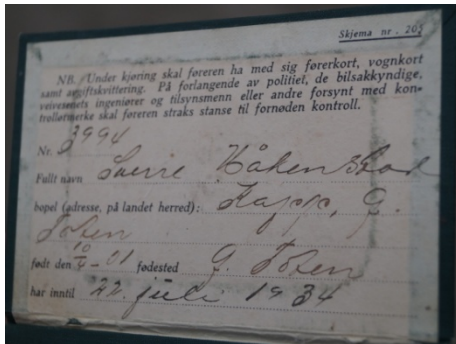 Skjema nr. 205
NB. Under kjøring skal føreren ha med sig førerkort, vognkort
samt avgiftskvittering. På forlangende av politiet, de bilsakkyndige,
veivesenets ingeniører og tilsynsmenn eller andre forsynt med kon-
trollørmerke skal føreren straks stanse til fornøden kontroll.
Nr. 3994
Fullt navn Sverre Håkenstad
bopel (adresse, på landet herred): Kapp, Ø.
Toten
født den 10/4-01 fødested Ø. Toten
har inntil 22. juli 1934